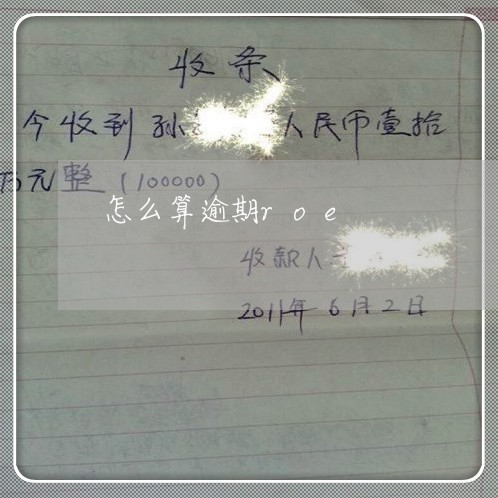 收条
今收到孙 人民币壹拾
万元整(100000)
怎么算逾期roe
收款人
2011年6月2日